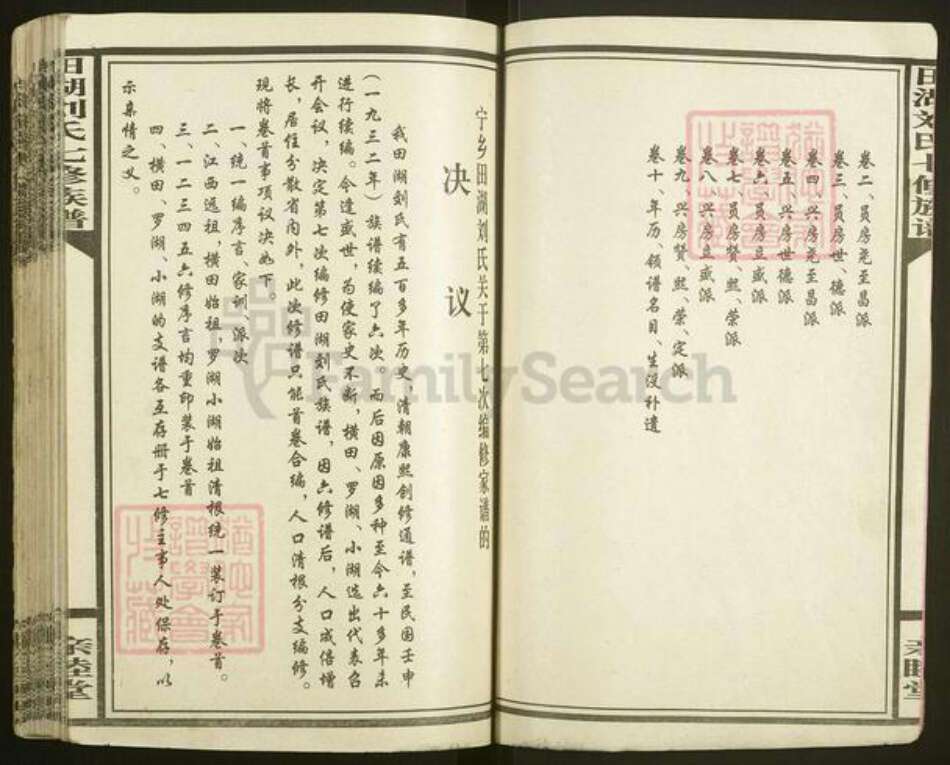 田湖刘氏七修族谱
亲睦堂
卷二、员房尧至昌派
卷三、员房世、德派
卷四、兴房尧至昌派
卷五、兴房世德派
卷六、员房立咸派
卷七、员房贤、熙、荣派
卷八、兴房立咸派
卷九、兴房贤、熙、荣、定派
卷十、年历、领谱名目、生没补遗
宁乡田湖刘氏关于第七次编修家谱的
决议
我田湖刘氏有五百多年历史，清朝康熙创修通谱，至民国壬申
（一九三二年）族谱续编了六次 而后因原因多种至今六十多年未
进行续编。今逢盛世，为使家史不断，横田、罗湖、小湖选出代表召
开会议，决定第七次编修田湖刘氏族谱，因六修谱后，人口成倍增
长，居住分散省内外，此次修谱只能首卷合编，人口清根分支编修。
现将卷首事项议决如下。
一、统一编序言、家训、派次
二、江西远祖，横田始祖，罗湖小湖始祖清根统一装订于卷首。
三、一二三四五六修序言均重印装于卷首
四、横田、罗湖、小湖的支谱各互存册于七修主事人处保存，以
示亲情之义。
田湖刘氏七修族谱
亲睦堂
FamilySearch